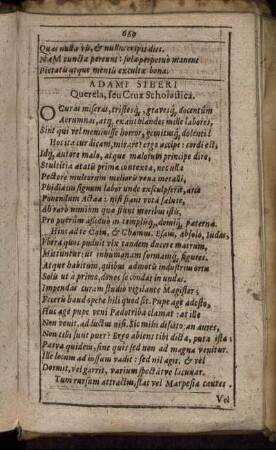 659
Quas nulla vis, & nulla eripit dies.
Nam cuncta pereunt: sola perpetuò manent
Pietatis atque mentis excultæ bona.
ADAMI SIBERI
Querela, seu Crux Scholastica.
O Curas miseras, tristesq́;, gravesq́; docentûm
Aerumnas, atq; exantlandos mille labores,
Sint qui vel meminisse horror, gemitusq́; dolenti!
Hoc ita cur dicam, mirare? ergo accipe: cordi est,
Idq́; autore malo, atque malorum principe diro,
Stultitia ætatis prima contexta, nec ulla
Pectore multorum melioris vena metalli,
Phidiacis signum labor unde exsculpserit, ara
Ponendum Actæa: nisi fiant vota salute,
Ab raro nimium qua sunt moribus istis,
Pro putrium assiduò in templisq́;, demiq́; paterna.
Hinc ad te Cain, & Chamus, Esau, absolo, Iudas,
Vbera quos pulsis vix tandem ducere matrum,
Mittuntur: ut inhumanam formamq́; figures.
Atque habitum, quibus admotis industrius ortu
Solis ut à primo, dones se condat in undas,
Impendas curam studio vigilante Magister;
Feceris haud opera hili quod sit. Pupe age adesto,
Huc age pupe veni Padotribia clamat: at ille
Non venit, ad luctus nisi. Sic mihi disato; an aures,
Non tibi sunt puer? Ergo abiens tibi dicta, puta ista:
Parva quidem, sine quis sed non ad magna venitur.
Ille locum ad iussum vadit: sed nil agit. & vel
Dormit, vel garrit, varium spectat ve lacunar.
Tum rursum attractus, stat vel Marpesia cautes.
Vel